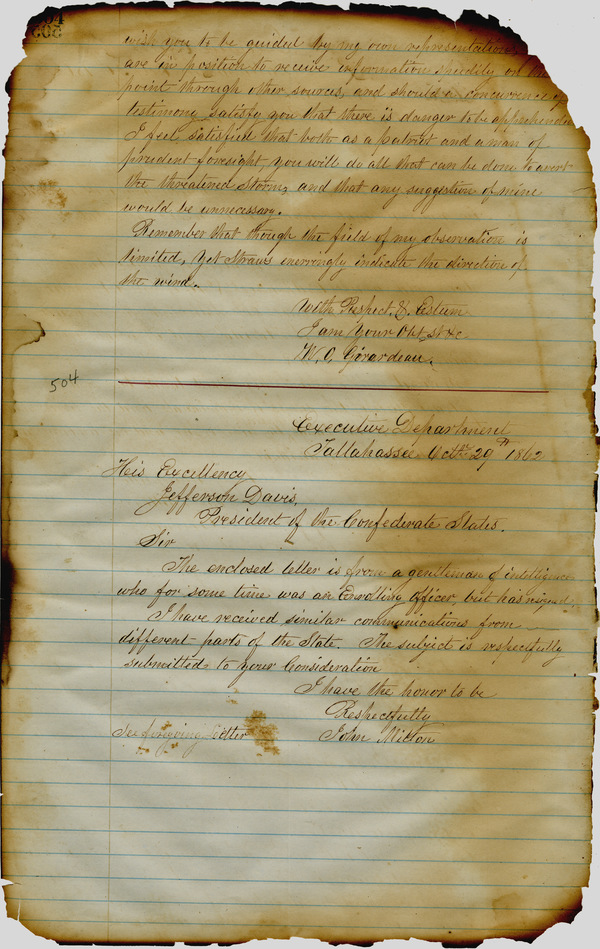 504
505
wish you to be guided by my own representations,
are in position to receive information speedily on this
point through other sources, and should a concurrence of
testimony satisfy you that there is danger to be apprehended
I feel satisfied that both as a patriot and a man of
prudent foresight you will do all that can be done to avert
the threatened storm, and that any suggestion of mine
would be unnecessary.
Remember that though the field of my observation is
limited, yet straws unerringly indicate the direction of
the wind.
With Respect. & Esteem
I am Your Obt. st &c
W. O. Girardeau.
504
Executive Department
Tallahassee Octbr 29th 1862
His Excellency
Jefferson Davis,
President of the Confederate States.
Sir
The enclosed letter is from a gentleman of intelligence
who for some time was an Enrolling officer but has resigned,
I have received similar communications from
different parts of the State. The subject is respectfully
submitted to your Consideration
I have the honor to be
Respectfully
See foregoing letter John Milton